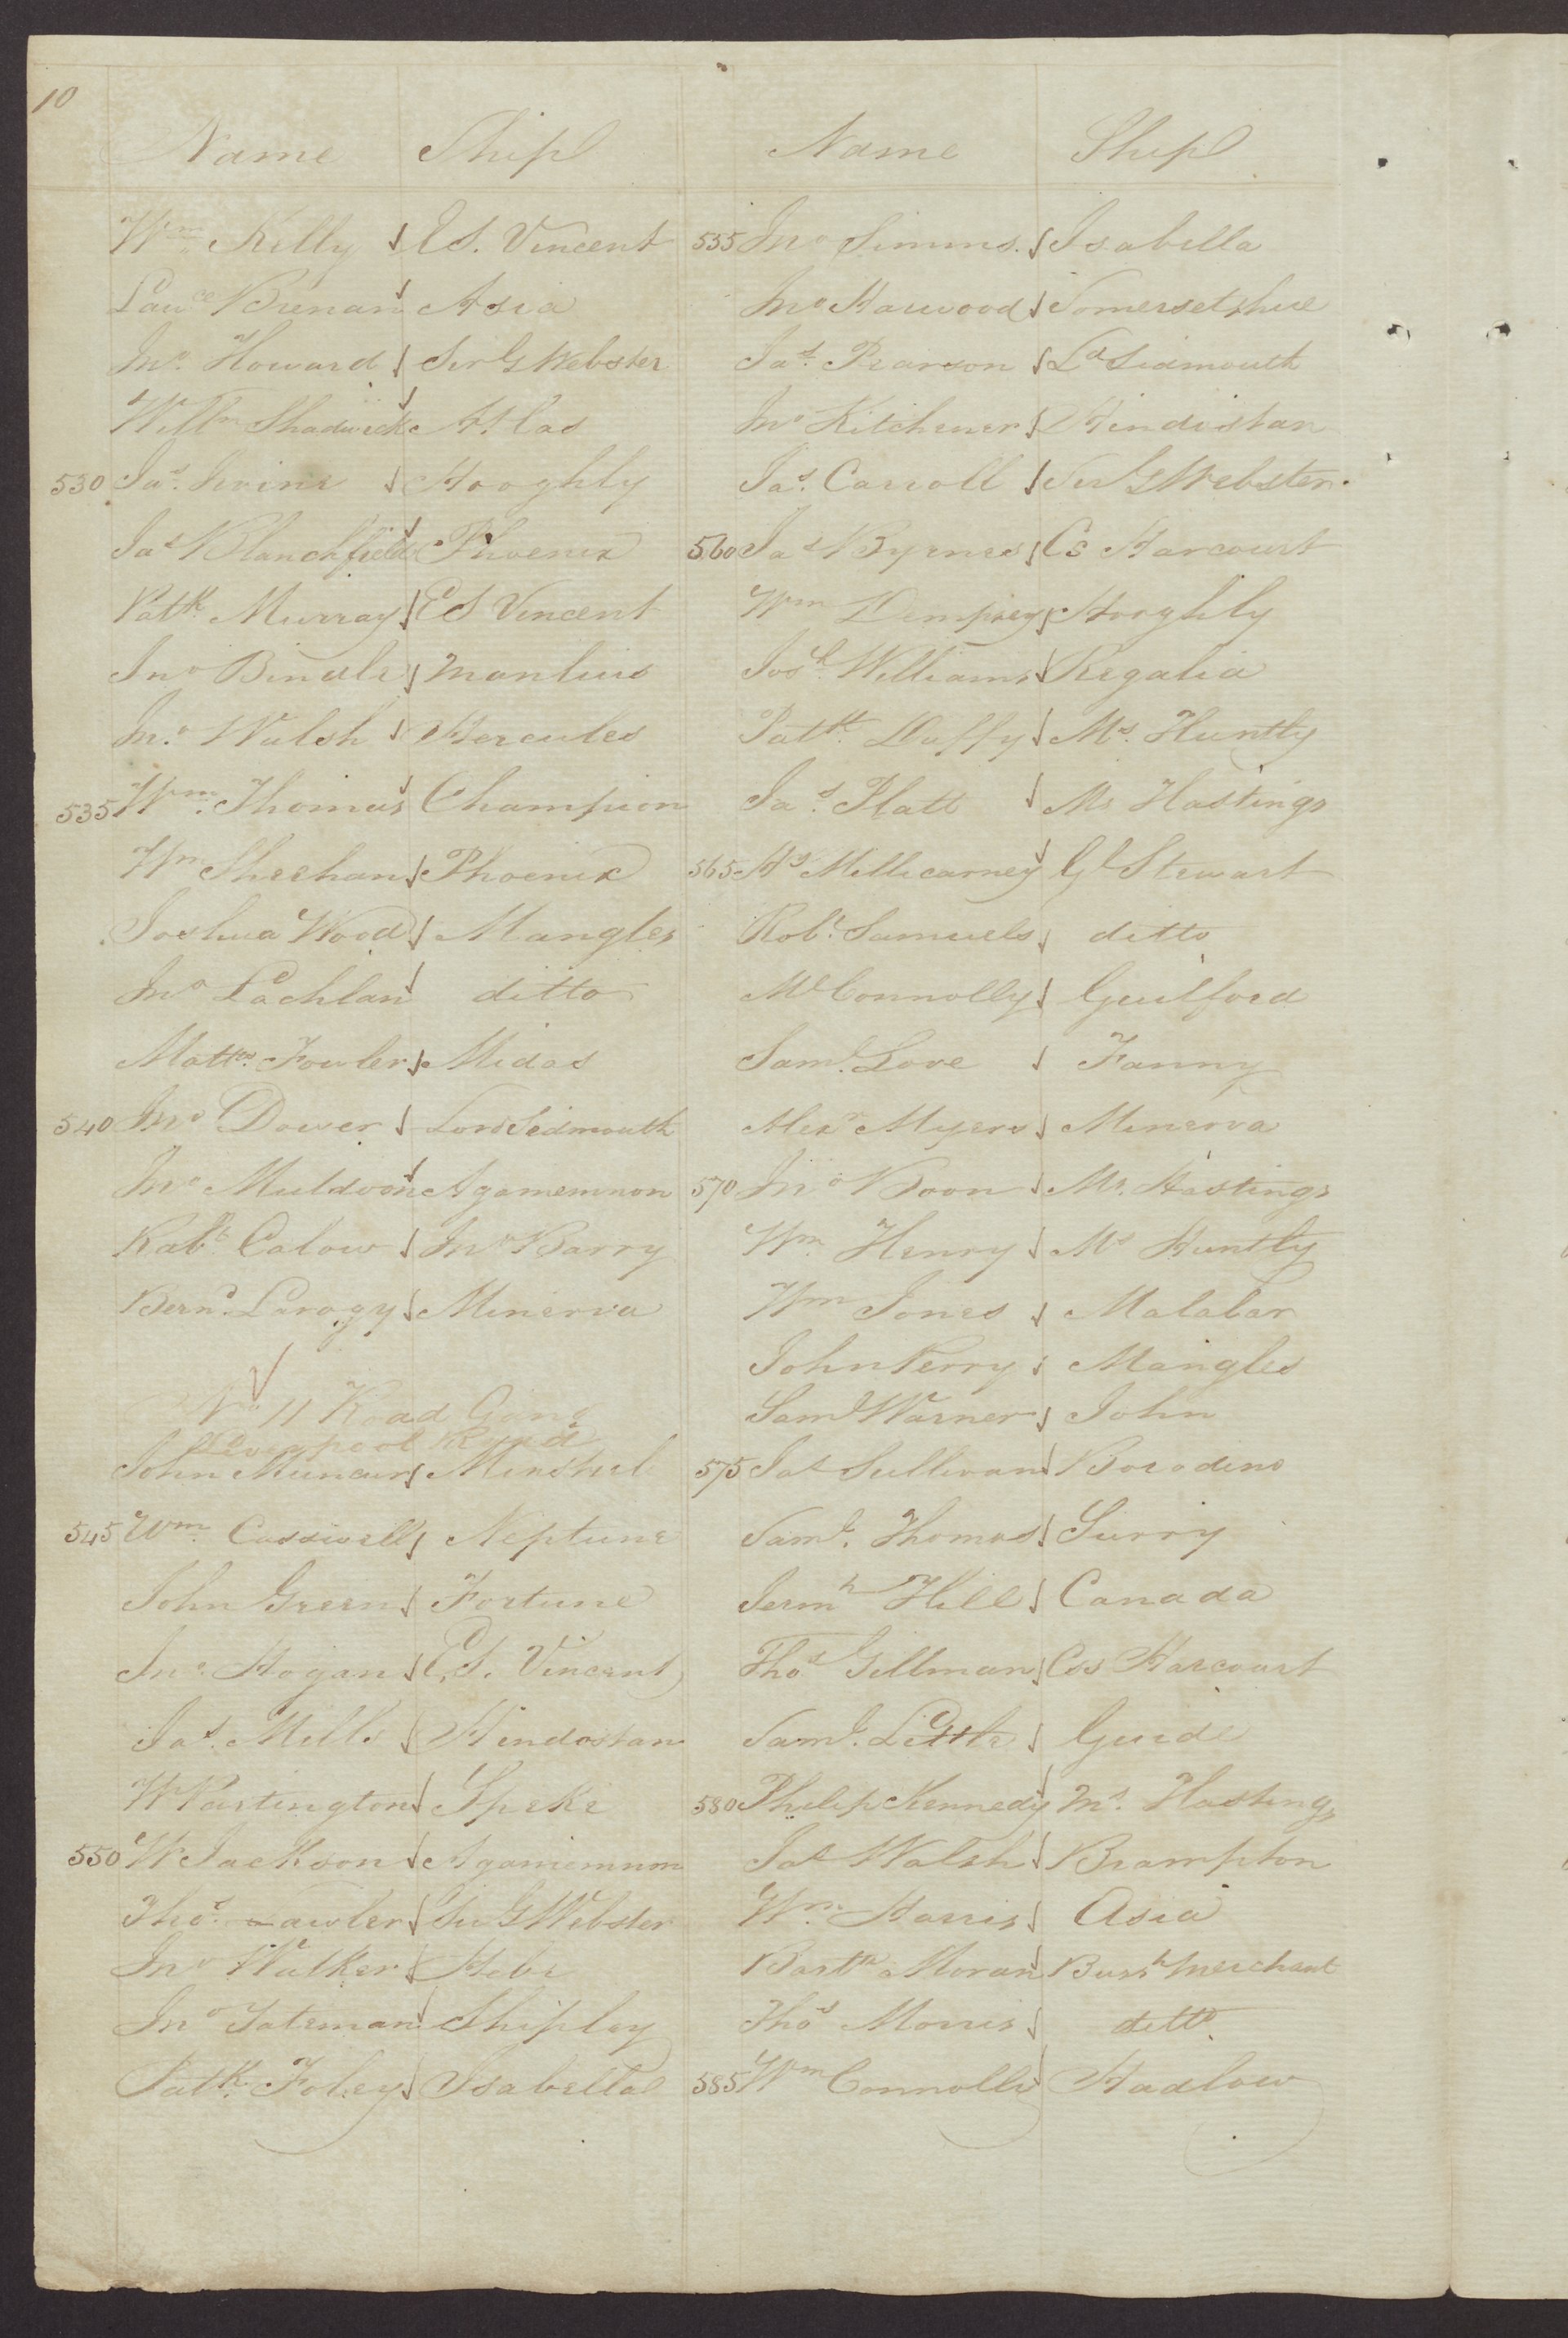 10
Name Ship
Wm. Kelly E S. Vincent
Lawce Brenan Asia
Jno. Howard Sir G Webster
Willm Shadwick Atlas
530 Jas. Irvine Hooghly
Jas Blanchfield Phoenix
Patk Murray E S Vincent
Jno Binale Manlius
Jno. Walsh Hercules
535 Wm. Thomas Champion
Wm Sheehan Phoenix
Joshua Wood Mangles
Jno Lachlan ditto
Mattw. Fowler Midas
540 Jno Dower Lord Sidmouth
Jno Muldoon Agamemnon
Robt. Calow Jno Barry
Bernd. Larogy Minerva
No 11 Road Gang
Liverpool Road
John Muncur Minstrel
545 Wm. Casswell Neptune
John Green Fortune
Jno. Hogan E. S. Vincent
Jas. Mills Hindostan
W Partington Speke
550 W Jackson Agamemnon
Thos. Lawler Sir G Webster
Jno Walker Hebe
Jno Tateman Shipley
Patk. Foley Isabella
Name Ship
555 Jno Simms. Isabella
Jno Harwood Somersetshire
Jas. Pearson Ld Sidmouth
Jno Kitchener Hindostan
Jas. Carroll Sir G Webster.
560 Jas Byrnes Cs Harcourt
Wm Dempsey Hooghly
Josh. Williams Regalia
Patk. Duffy Ms. Huntly
Jas. Platt Ms Hastings
565 As Millicarney Gl Stewart
Robt. Samuels ditto
Ml Connolly Guilford
Saml. Love Fanny
Alexr Myers Minerva
570 Jno Boon Ms. Hastings
Wm Henry Ms Huntly
Wm Jones Malabar
John Perry Mangles
Saml Warner John
575 Jas Sullivan Borodino
Saml. Thomas Surry
Jermh Hill Canada
Thos Gillman Css Harcourt
Saml. Little Guide
580 Philip Kennedy Ms. Hastings
Jas Walsh Brampton
Wm. Harris Asia
Bartw Moran Bussh Merchant
Thos Morris ditto.
585 Wm Connolly Hadlow